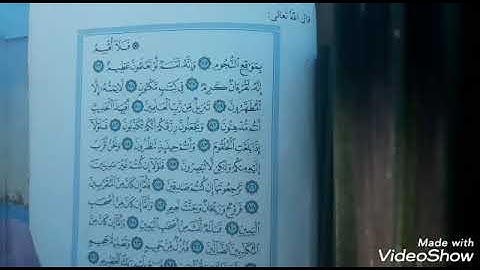 قال الله تعالى:
۞ فَلَآ أُقْسِمُ
بِمَوَٰقِعِ ٱلنُّجُومِ ٧٥ وَإِنَّهُۥ لَقَسَمٌ لَّوْ تَعْلَمُونَ عَظِيمٌ ٧٦
إِنَّهُۥ لَقُرْءَانٌ كَرِيمٌ ٧٧ فِى كِتَٰبٍ مَّكْنُونٍ ٧٨ لَّا يَمَسُّهُۥٓ إِلَّا
ٱلْمُطَهَّرُونَ ٧٩ تَنزِيلٌ مِّن رَّبِّ ٱلْعَٰلَمِينَ ٨٠ أَفَبِهَٰذَا ٱلْحَدِيثِ
أَنتُم مُّدْهِنُونَ ٨١ وَتَجْعَلُونَ رِزْقَكُمْ أَنَّكُمْ تُكَذِّبُونَ ٨٢ فَلَوْلَآ
إِذَا بَلَغَتِ ٱلْحُلْقُومَ ٨٣ وَأَنتُمْ حِينَئِذٍ تَنظُرُونَ ٨٤ وَنَحْنُ أَقْرَبُ
إِلَيْهِ مِنكُمْ وَلَٰكِن لَّا تُبْصِرُونَ ٨٥ فَلَوْلَآ إِن كُنتُمْ غَيْرَ مَدِينِينَ
٨٦ تَرْجِعُونَهَآ إِن كُنتُمْ صَٰدِقِينَ ٨٧ فَأَمَّآ إِن كَانَ مِنَ ٱلْمُقَرَّبِينَ
٨٨ فَرَوْحٌ وَرَيْحَانٌ وَجَنَّتُ نَعِيمٍ ٨٩ وَأَمَّآ إِن كَانَ مِنْ أَصْحَٰبِ
ٱلْيَمِينِ ٩٠ فَسَلَٰمٌ لَّكَ مِنْ أَصْحَٰبِ ٱلْيَمِينِ ٩١ وَأَمَّآ إِن كَانَ مِنَ
ٱلْمُكَذِّبِينَ ٱلضَّآلِّينَ ٩٢ فَنُزُلٌ مِّنْ حَمِيمٍ ٩٣ وَتَصْلِيَةُ جَحِيمٍ
Made with
VideoShow